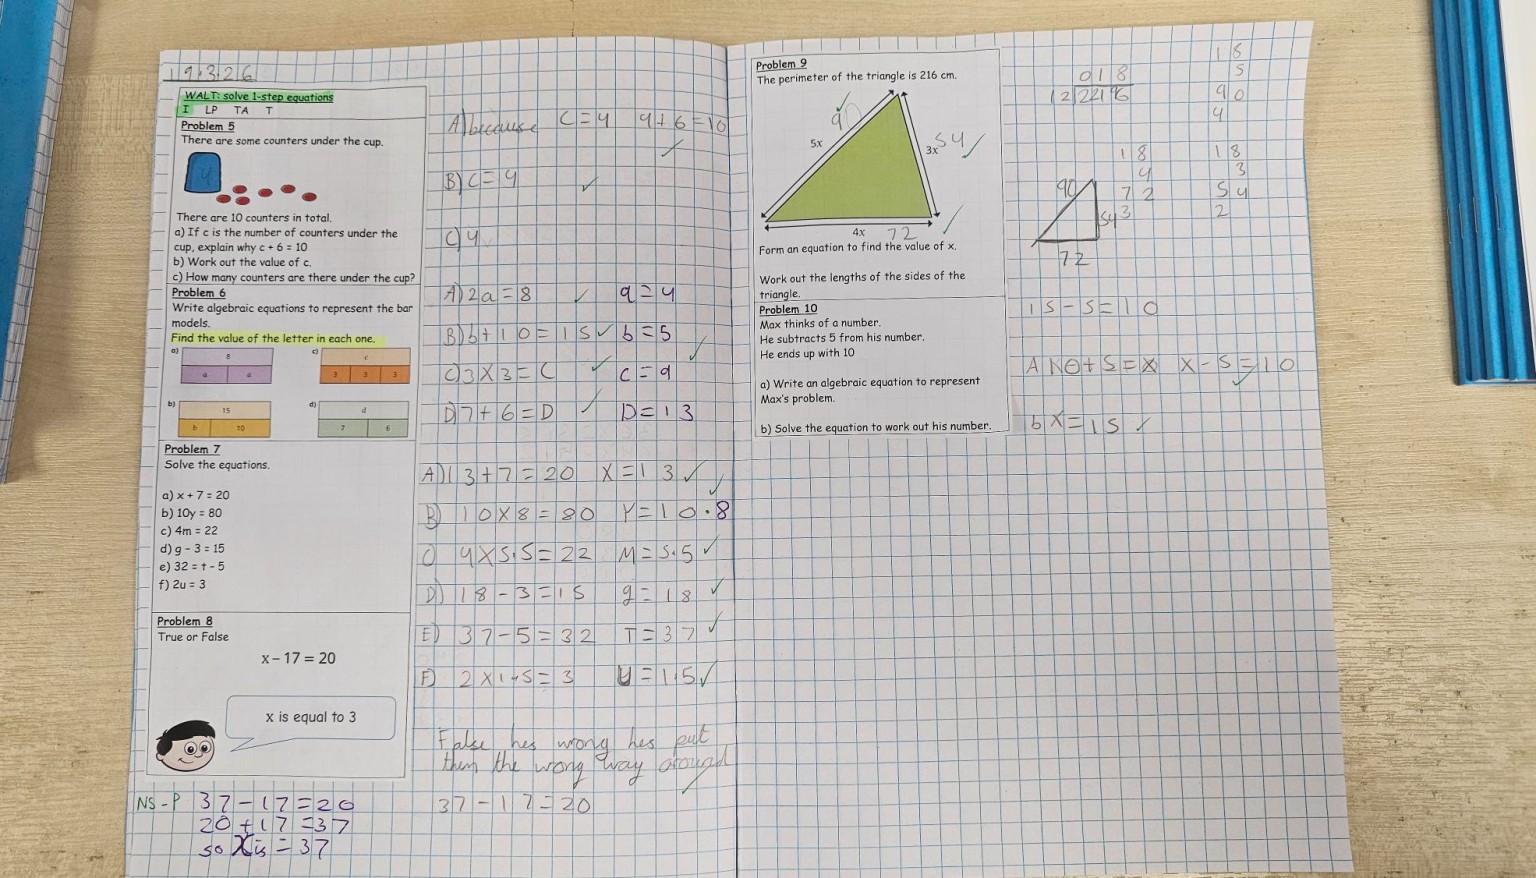 19.3.26
WALT: solve 1-step equations
I LP TA T
Problem 5
There are some counters under the cup.
4
There are 10 counters in total.
a) If c is the number of counters under the
cup, explain why c + 6 = 10
b) Work out the value of c.
c) How many counters are there under the cup?
Problem 6
Write algebraic equations to represent the bar
models.
Find the value of the letter in each one.
a) 8
a a
c) c
3 3 3
b) 15
b 10
d) d
7 6
Problem 7
Solve the equations.
a) x + 7 = 20
b) 10y = 80
c) 4m = 22
d) g - 3 = 15
e) 32 = t - 5
f) 2u = 3
Problem 8
True or False
x - 17 = 20
x is equal to 3
NS-P 37-17=20
20+17=37
so X is = 37
A) because C=4 4+6=10
B) C=4
C) 4
A) 2a=8 a=4
B) b+10=15 b=5
C) 3X3=C C=9
D) 7+6=D D=13
A) 13+7=20 X=13
B) 10X8=80 Y=10.8
C) 4X5.5=22 M=5.5
D) 18-3=15 g=18
E) 37-5=32 T=37
F) 2X1.5=3 U=1.5
False hes wrong hes put
them the wrong way around
37-17=20
Problem 9
The perimeter of the triangle is 216 cm.
5x
3x 54
4x 72
Form an equation to find the value of x.
Work out the lengths of the sides of the
triangle.
Problem 10
Max thinks of a number.
He subtracts 5 from his number.
He ends up with 10
a) Write an algebraic equation to represent
Max's problem.
b) Solve the equation to work out his number.
018
18
5
90
4
18
4
72
3
18
3
54
2
90
54
72
15-5=10
A 10+5=X X-5=10
b X=15